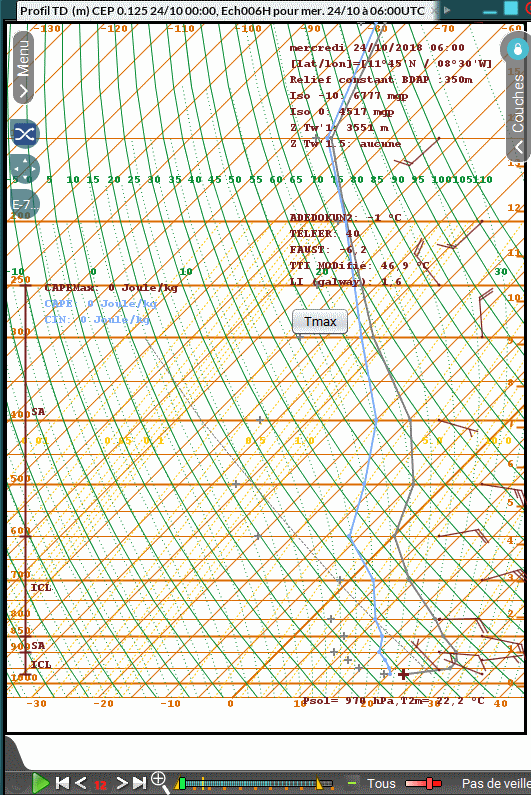 Profil TD (m) CEP 0.125 24/10 00:00, Ech006H pour mer. 24/10 à 06:00UTC
-80
-70
-60
mercredi 24/10/2018 06:00
[lat/lon]=[11°45 N / 08°30 W]
Relief constant BDAP :350m
Iso -10: 6777 mgp
Iso 0: 4517 mgp
Z Tw 1: 3551 m
Z Tw 1.5: aucune
Menu
Couches
E-7...
5 10 15 20 25 30 35 40 45 50 55 60 65 70 75 80 85 90 95 100 105 110
200
ADEDOKUN2: -1 °C
TELFER: 40
FAUST: -6,2
TTI MOdifie: 46,9 °C
LI (galway) 1,6
-10 0 10 20 30
250
CAPEMax: 0 Joule/kg
CAPE 0 Joule/kg
CIN: 0 Joule/kg
Tmax
300
SA
400
500
600
700
ICL
800
850
SA
900
ICL
1000
12
11
10
9
8
7
6
5
4
3
2
1
0
-30 -20 -10 0 10 20 30 40
Psol= 970 hPa,T2m= 22,2 °C
12
Tous
Pas de veille